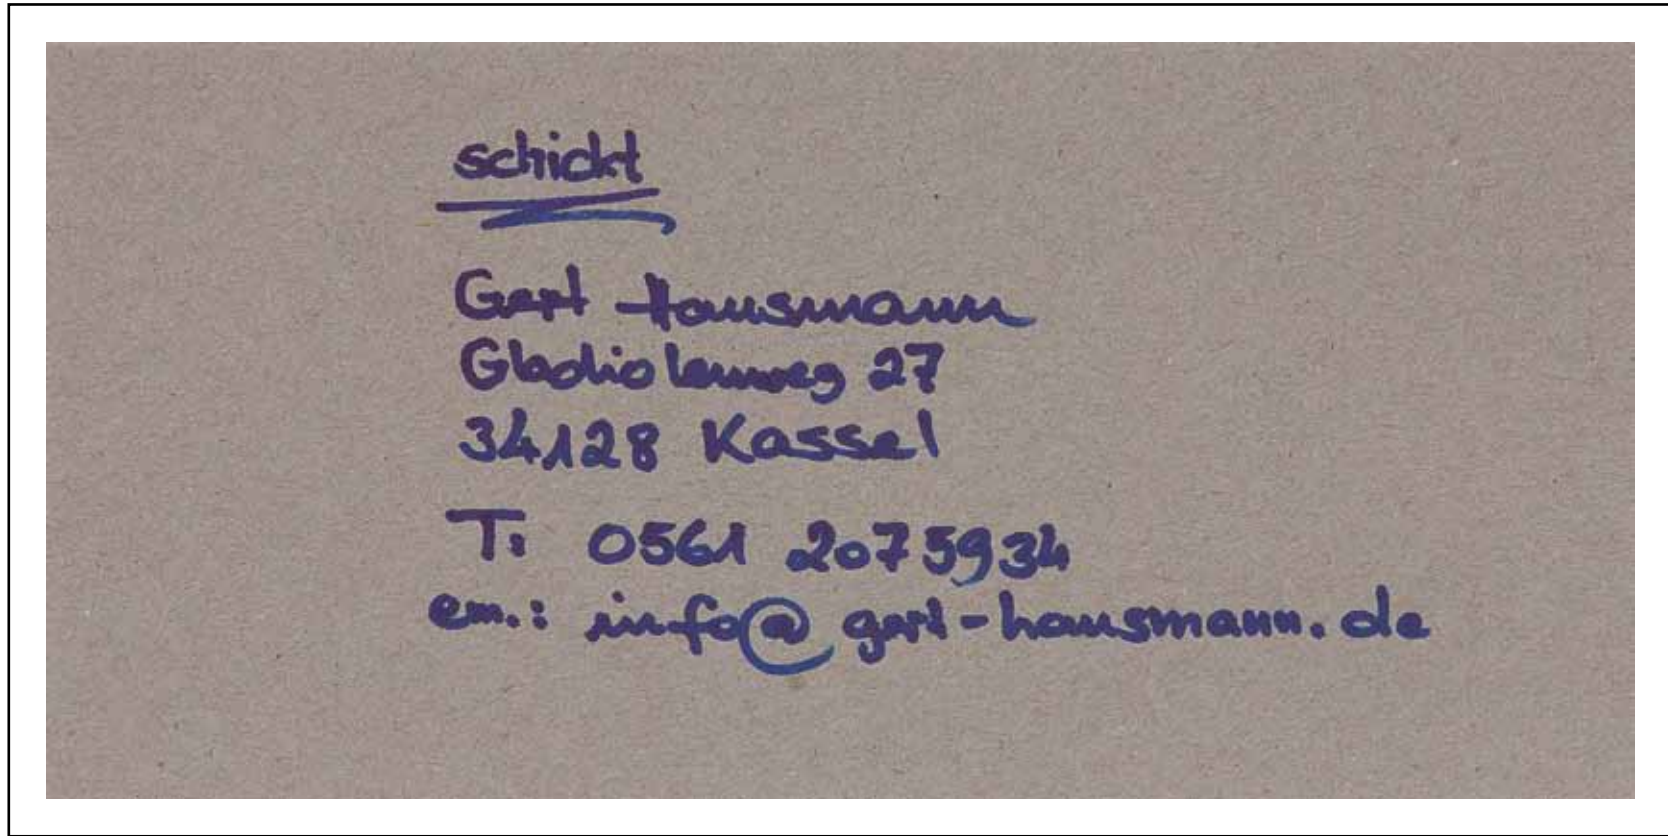 schickt
Gert Hausmann
Gladiolenweg 27
34128 Kassel
T: 0561 2075934
em.: info@gert-hausmann.de